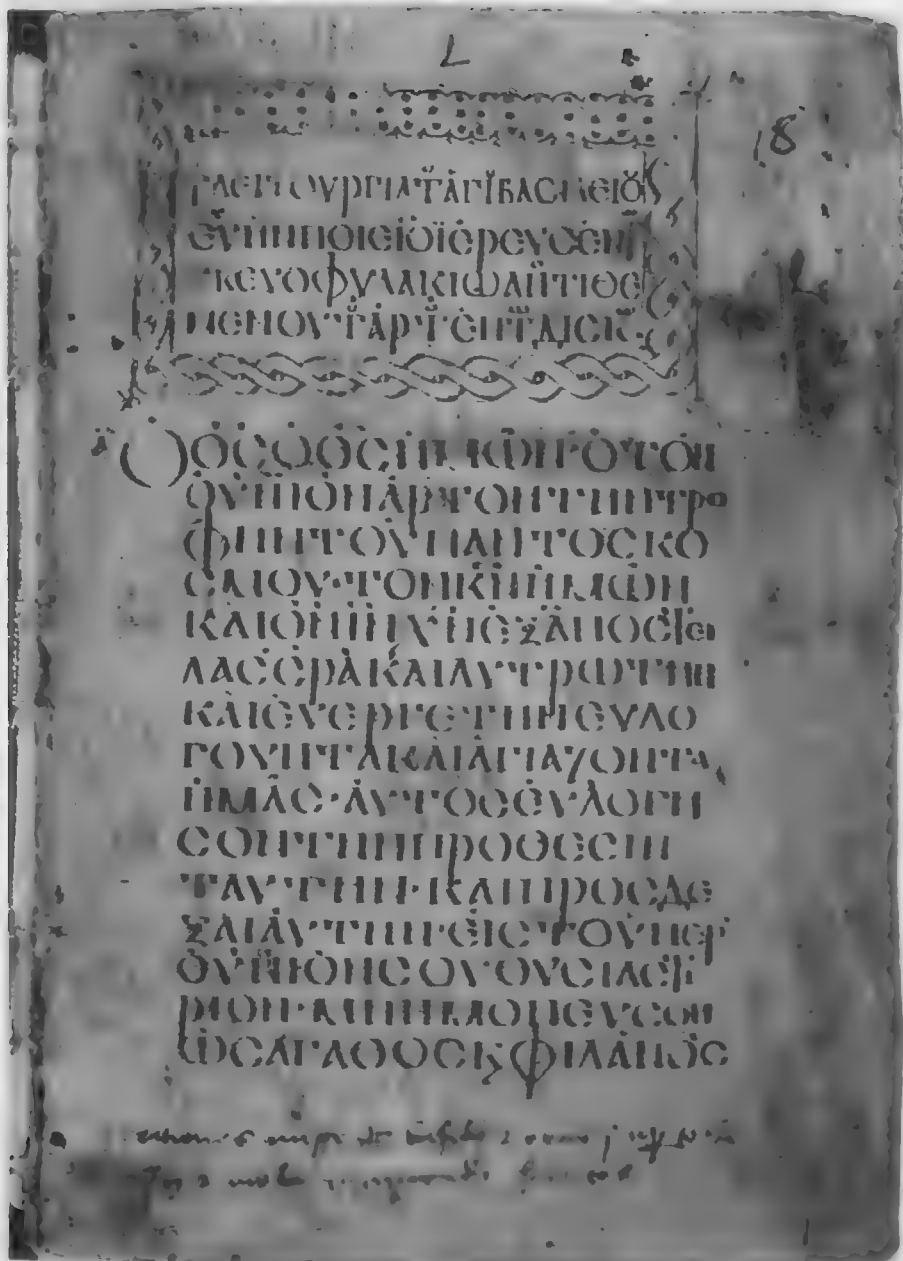 L
18
ΛΕΙΤΟΥΡΓΙΑ Τ ΑΓΙ ΒΑCΙΛΕΙΟΥ
ΕΥΧ ΗΝ ΠΟΙΕΙ Ο ΙΕΡΕΥC ΕΝ Τ
CΚΕΥΟΦΥΛΑΚΙΩ ΑΠΤΙΘΕ
ΜΕΝΟΥ Τ ΑΡΤ ΕΝ Τ ΔΙCΚ
Ο ΘC Ο ΘC ΗΜΩΝ Ο ΤΟΝ
ΟΥΝΙΟΝ ΑΡΤΟΝ ΤΗΝ ΤΡΟ
ΦΗΝ ΤΟΥ ΠΑΝΤΟC ΚΟ
CΜΟΥ· ΤΟΝ ΚΝ ΗΜΩΝ
ΚΑΙ ΘΝ ΙΝ ΧΝ ΕΞΑΠΟCΤΕΙ
ΛΑC CΡΑ ΚΑΙ ΛΥΤΡΩΤΗΝ
ΚΑΙ ΕΥΕΡΓΕΤΗΝ ΕΥΛΟ
ΓΟΥΝΤΑ ΚΑΙ ΑΓΙΑΖΟΝΤΑ
ΗΜΑC· ΑΥΤΟC ΕΥΛΟΓΗ
CΟΝ ΤΗΝ ΠΡΟΘΕCΙΝ
ΤΑΥΤΗΝ· ΚΑΙ ΠΡΟCΔΕ
ΞΑΙ ΑΥΤΗΝ ΕΙC ΤΟ ΥΠΕΡ
ΟΥΝΙΟΝ CΟΥ ΘΥCΙΑCΤΗ
ΡΙΟΝ· ΜΝΗΜΟΝΕΥCΟΝ
ΩC ΑΓΑΘΟC ϗ ΦΙΛΑΝΟC